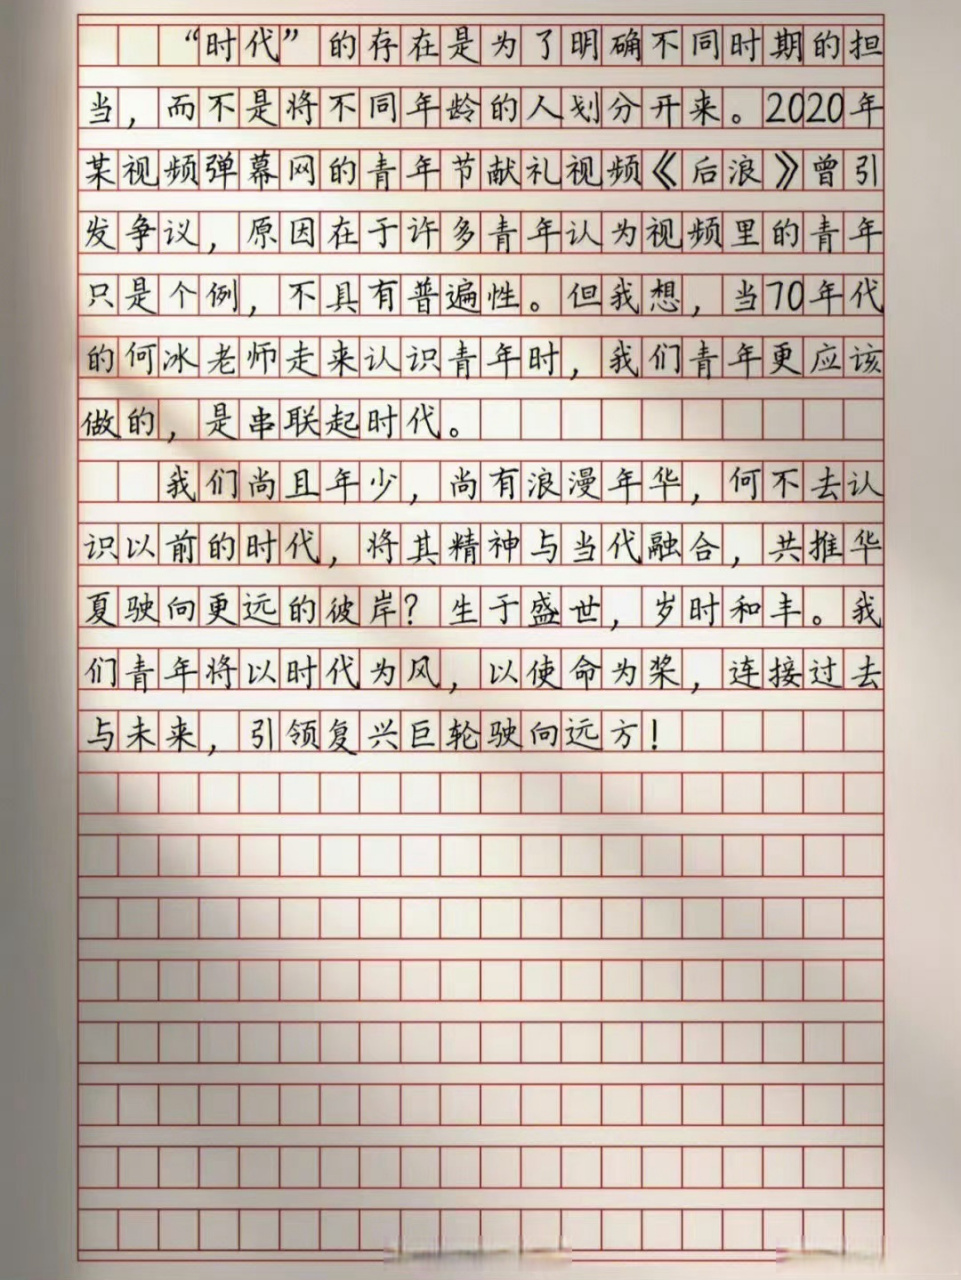 “时代”的存在是为了明确不同时期的担
当，而不是将不同年龄的人划分开来。2020年
某视频弹幕网的青年节献礼视频《后浪》曾引
发争议，原因在于许多青年认为视频里的青年
只是个例，不具有普遍性。但我想，当70年代
的何冰老师走来认识青年时，我们青年更应该
做的，是串联起时代。
我们尚且年少，尚有浪漫年华，何不去认
识以前的时代，将其精神与当代融合，共推华
夏驶向更远的彼岸？生于盛世，岁时和丰。我
们青年将以时代为风，以使命为桨，连接过去
与未来，引领复兴巨轮驶向远方！